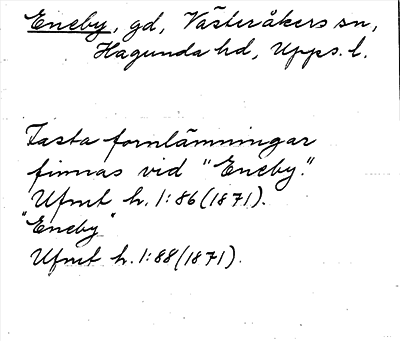 Eneby, gd, Västeråkers sn,
Hagunda hd, Upps. l.
Fasta fornlämningar
finnas vid "Eneby."
Ufmt h. 1:86 (1871).
"Eneby"
Ufmt h. 1:88 (1871).